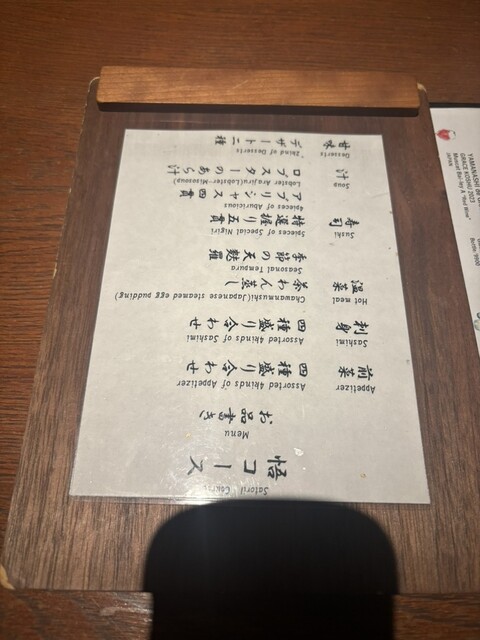 悟コース
Menu
お品書き
Appetizer Assorted 4kinds of Appetizer
前菜 四種盛り合わせ
Sashimi Assorted 4kinds of Sashimi
刺身 四種盛り合わせ
Hot meal Chawanmushi(Japanese steamed egg pudding)
温菜 茶わん蒸し
Seasonal Tempura
季節の天麩羅
Sushi 5pieces of Special Nigiri
寿司 特選握り五貫
4pieces of Aburicious
アブリシャス四貫
Soup Lobster Arajiru(Lobster Misosoup)
汁 ロブスターのあら汁
Desserts 2kind of Desserts
甘味 デザート二種
YAMANASHI
GRACE KOSHU 2023
"Red Wine"
Bottle